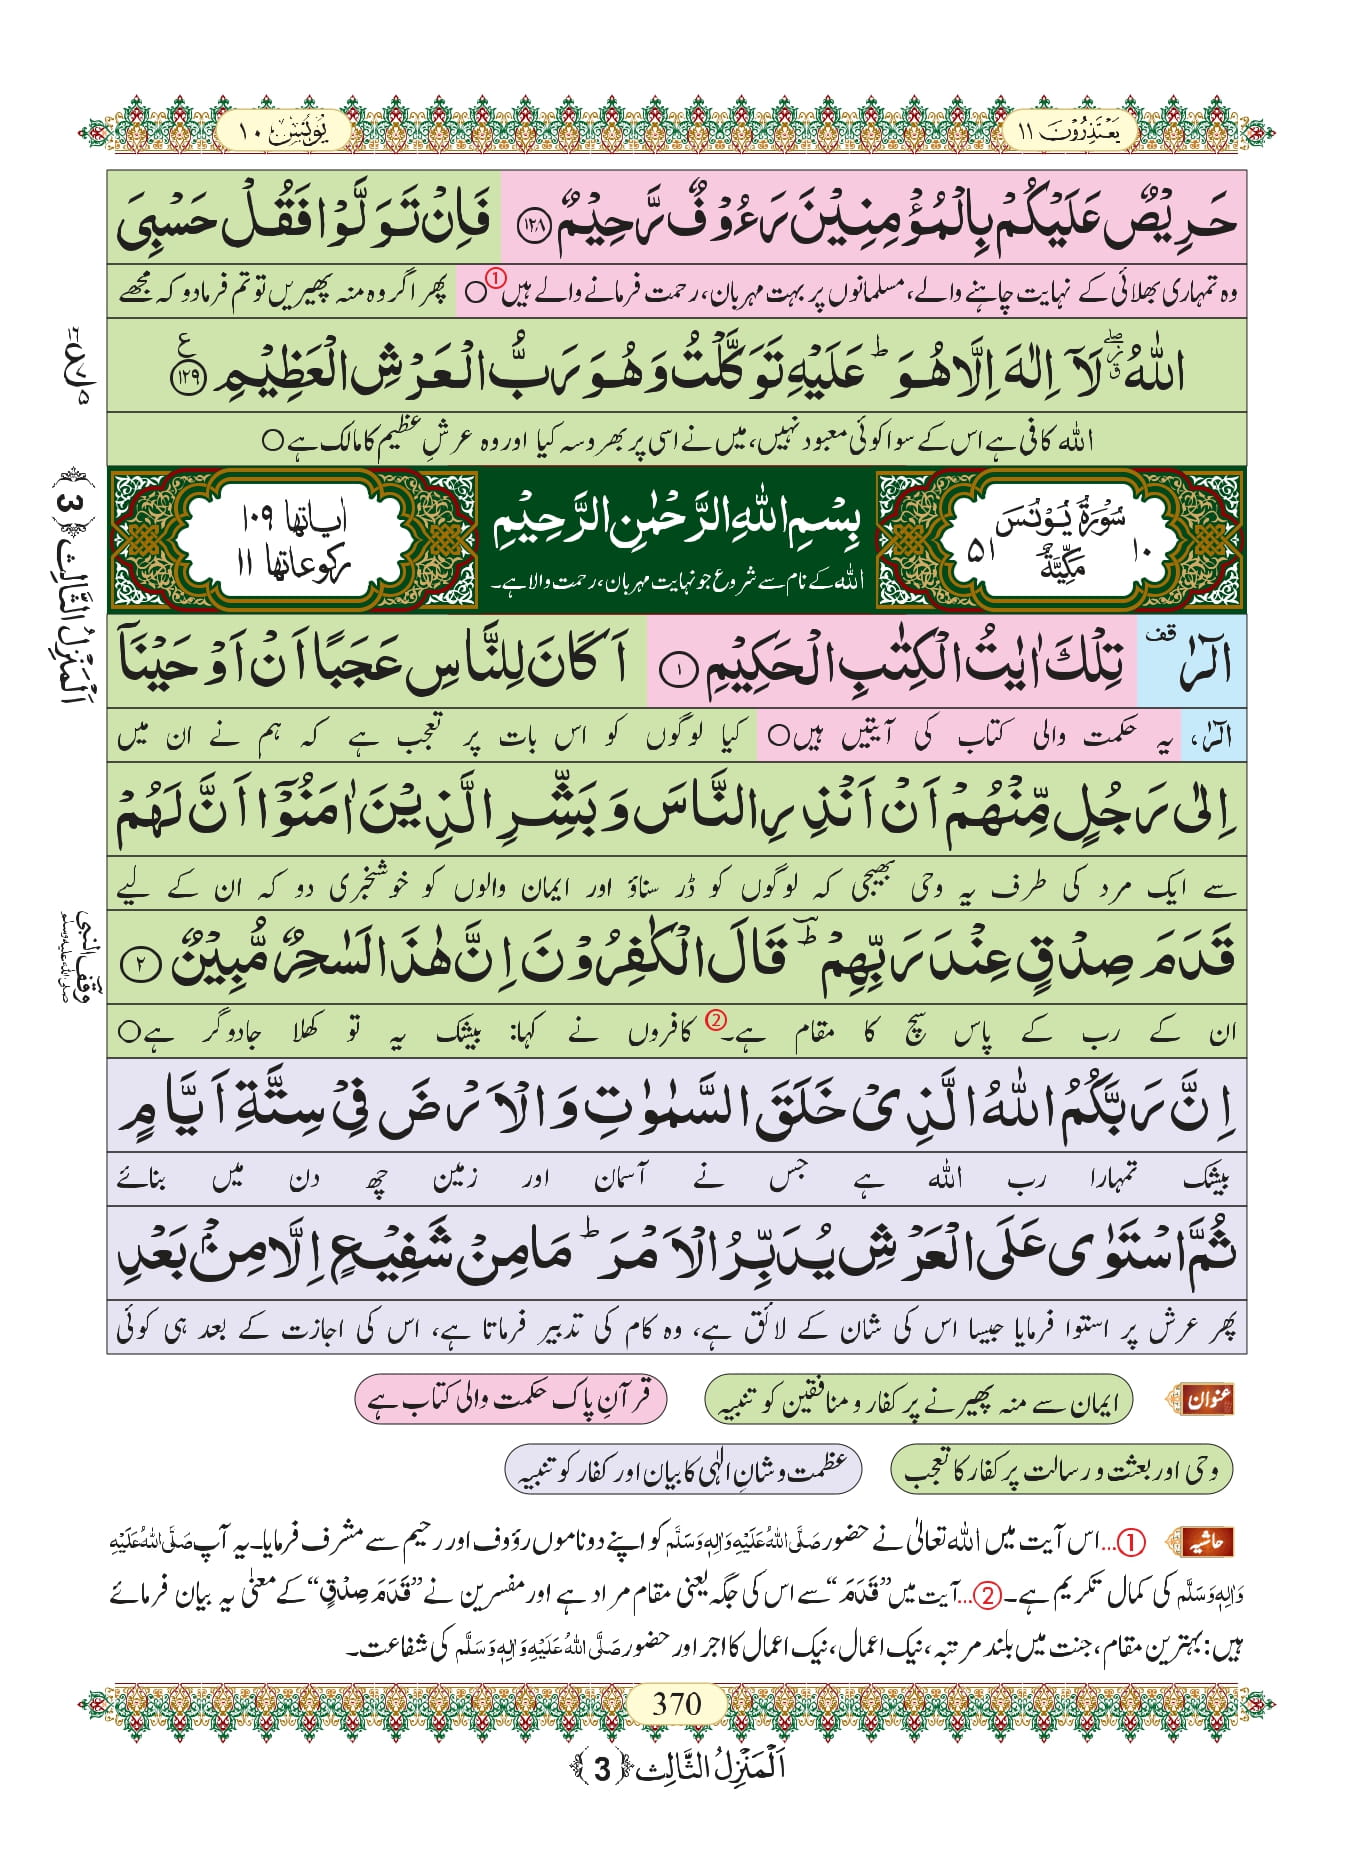 یَعْتَذِرُوْنَ ۱۱
یُوْنُس ۱۰
حَرِیْصٌ عَلَیْكُمْ بِالْمُؤْمِنِیْنَ رَءُوْفٌ رَّحِیْمٌ ﴿۱۲۸﴾ فَاِنْ تَوَلَّوْا فَقُلْ حَسْبِیَ
وہ تمہاری بھلائی کے نہایت چاہنے والے، مسلمانوں پر بہت مہربان، رحمت فرمانے والے ہیں ① ○ پھر اگر وہ منہ پھیریں تو تم فرمادو کہ مجھے
اللّٰهُ ۖ٘ لَاۤ اِلٰهَ اِلَّا هُوَ ؕ عَلَیْهِ تَوَكَّلْتُ وَ هُوَ رَبُّ الْعَرْشِ الْعَظِیْمِ ﴿۱۲۹﴾ ع
اللہ کافی ہے اس کے سوا کوئی معبود نہیں، میں نے اسی پر بھروسہ کیا اور وہ عرشِ عظیم کا مالک ہے ○
سُوْرَةُ یُوْنُسَ
۱۰ مَكِّیَّةٌ ۵۱
بِسْمِ اللّٰهِ الرَّحْمٰنِ الرَّحِیْمِ
اللہ کے نام سے شروع جو نہایت مہربان، رحمت والا ہے۔
اٰیاتھا ۱۰۹
رکوعاتھا ۱۱
الٓرٰ ۫ قف تِلْكَ اٰیٰتُ الْكِتٰبِ الْحَكِیْمِ ﴿۱﴾ اَكَانَ لِلنَّاسِ عَجَبًا اَنْ اَوْحَیْنَاۤ
الٓرٰ، یہ حکمت والی کتاب کی آیتیں ہیں ○ کیا لوگوں کو اس بات پر تعجب ہے کہ ہم نے ان میں
اِلٰى رَجُلٍ مِّنْهُمْ اَنْ اَنْذِرِ النَّاسَ وَ بَشِّرِ الَّذِیْنَ اٰمَنُوْۤا اَنَّ لَهُمْ
سے ایک مرد کی طرف یہ وحی بھیجی کہ لوگوں کو ڈر سناؤ اور ایمان والوں کو خوشخبری دو کہ ان کے لیے
قَدَمَ صِدْقٍ عِنْدَ رَبِّهِمْ ؔؕ قَالَ الْكٰفِرُوْنَ اِنَّ هٰذَا لَسٰحِرٌ مُّبِیْنٌ ﴿۲﴾
ان کے رب کے پاس سچ کا مقام ہے۔ ② کافروں نے کہا: بیشک یہ تو کھلا جادوگر ہے ○
اِنَّ رَبَّكُمُ اللّٰهُ الَّذِیْ خَلَقَ السَّمٰوٰتِ وَ الْاَرْضَ فِیْ سِتَّةِ اَیَّامٍ
بیشک تمہارا رب اللہ ہے جس نے آسمان اور زمین چھ دن میں بنائے
ثُمَّ اسْتَوٰى عَلَى الْعَرْشِ یُدَبِّرُ الْاَمْرَ ؕ مَا مِنْ شَفِیْعٍ اِلَّا مِنْۢ بَعْدِ
پھر عرش پر استوا فرمایا جیسا اس کی شان کے لائق ہے، وہ کام کی تدبیر فرماتا ہے، اس کی اجازت کے بعد ہی کوئی
عنوان ایمان سے منہ پھیرنے پر کفار و منافقین کو تنبیہ قرآنِ پاک حکمت والی کتاب ہے
وحی اور بعثت و رسالت پر کفار کا تعجب عظمت و شانِ الٰہی کا بیان اور کفار کو تنبیہ
حاشیہ ①...اس آیت میں اللہ تعالیٰ نے حضور صَلَّی اللّٰهُ عَلَیْهِ وَاٰلِهٖ وَسَلَّم کو اپنے دو ناموں رؤوف اور رحیم سے مشرف فرمایا۔ یہ آپ صَلَّی اللّٰهُ عَلَیْهِ
وَاٰلِهٖ وَسَلَّم کی کمال تکریم ہے۔ ②...آیت میں ”قَدَمَ“ سے اس کی جگہ یعنی مقام مراد ہے اور مفسرین نے ”قَدَمَ صِدْقٍ“ کے معنی یہ بیان فرمائے
ہیں: بہترین مقام، جنت میں بلند مرتبہ، نیک اعمال، نیک اعمال کا اجر اور حضور صَلَّی اللّٰهُ عَلَیْهِ وَاٰلِهٖ وَسَلَّم کی شفاعت۔
370
اَلْمَنْزِلُ الثَّالِث ﴿3﴾
ع ۱۶ ۷ ۵
اَلْمَنْزِلُ الثَّالِث ﴿3﴾
وقف النبی صلی اللہ علیہ وسلم